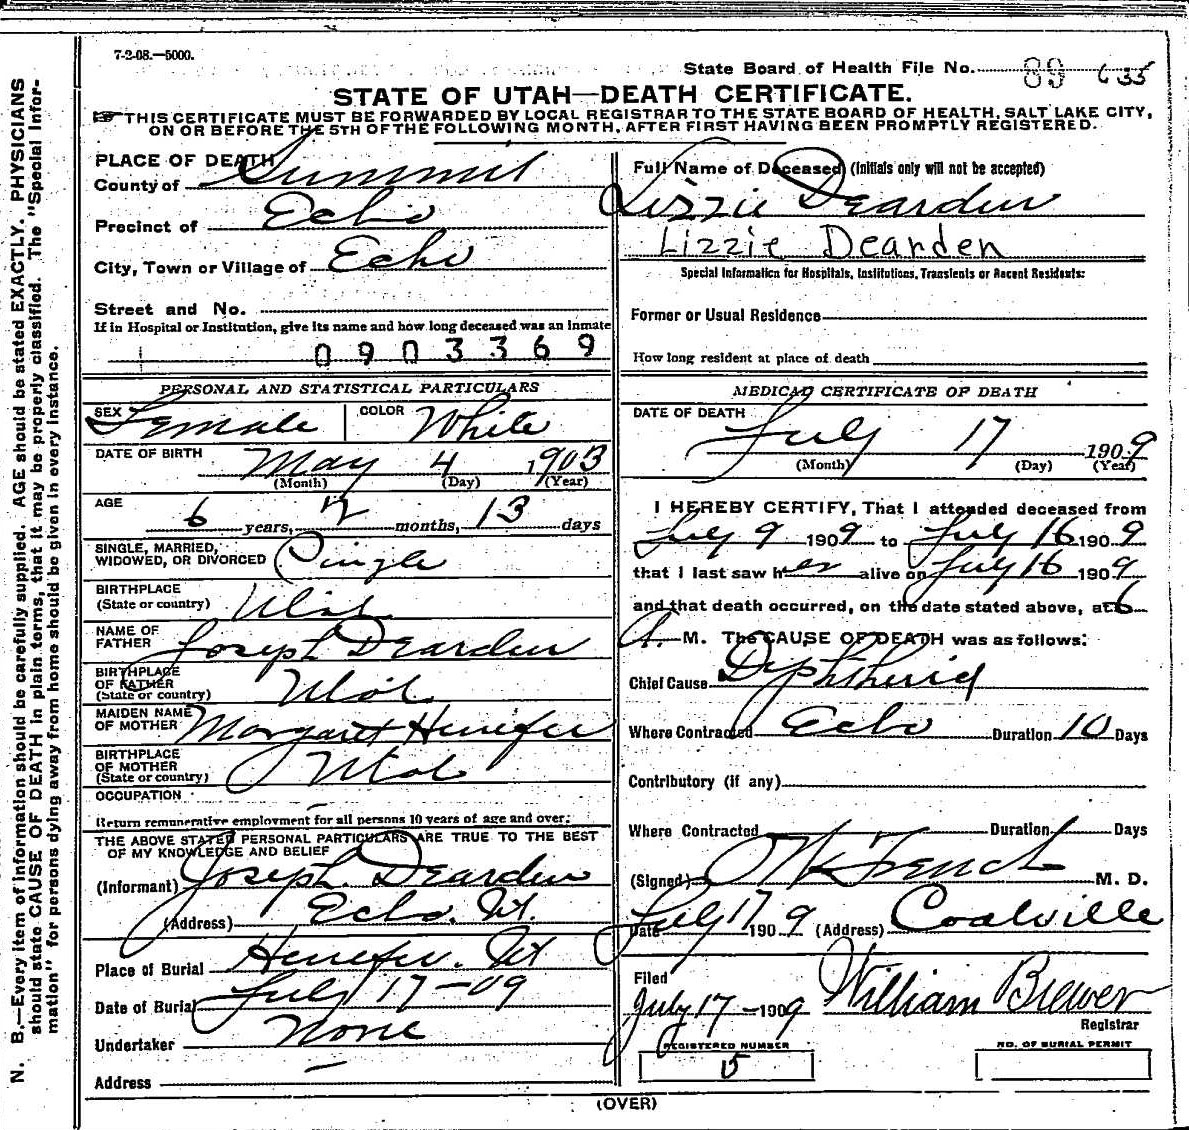 7-2-08.—5000.
State Board of Health File No. 89 635
STATE OF UTAH—DEATH CERTIFICATE.
THIS CERTIFICATE MUST BE FORWARDED BY LOCAL REGISTRAR TO THE STATE BOARD OF HEALTH, SALT LAKE CITY,
ON OR BEFORE THE 5TH OF THE FOLLOWING MONTH, AFTER FIRST HAVING BEEN PROMPTLY REGISTERED.
PLACE OF DEATH
County of Summit
Precinct of Echo
City, Town or Village of Echo
Street and No.
If in Hospital or Institution, give its name and how long deceased was an inmate
0903369
PERSONAL AND STATISTICAL PARTICULARS
SEX Female COLOR White
DATE OF BIRTH May 4 1903
(Month) (Day) (Year)
AGE
6 years, 2 months, 13 days
SINGLE, MARRIED,
WIDOWED, OR DIVORCED Single
BIRTHPLACE
(State or country) Utah
NAME OF
FATHER Joseph Dearden
BIRTHPLACE
OF FATHER
(State or country) Utah
MAIDEN NAME
OF MOTHER Margaret Henefer
BIRTHPLACE
OF MOTHER
(State or country) Utah
OCCUPATION
Return remunerative employment for all persons 10 years of age and over:
THE ABOVE STATED PERSONAL PARTICULARS ARE TRUE TO THE BEST
OF MY KNOWLEDGE AND BELIEF
(Informant) Joseph Dearden
(Address) Echo. Ut.
Place of Burial Henefer. Ut
Date of Burial July 17-09
Undertaker None
Address
Full Name of Deceased (Initials only will not be accepted)
Lizzie Dearden
Lizzie Dearden
Special Information for Hospitals, Institutions, Transients or Recent Residents:
Former or Usual Residence
How long resident at place of death
MEDICAL CERTIFICATE OF DEATH
DATE OF DEATH
July 17 1909
(Month) (Day) (Year)
I HEREBY CERTIFY, That I attended deceased from
July 9 1909 to July 16 1909
that I last saw her alive on July 16 1909
and that death occurred, on the date stated above, at 6
A. M. The CAUSE OF DEATH was as follows:
Chief Cause Diphtheria
Where Contracted Echo Duration 10 Days
Contributory (if any)
Where Contracted Duration Days
(Signed) M. D.
Date July 17 1909 (Address) Coalville
Filed
July 17-1909 William Brewer
Registrar
REGISTERED NUMBER
5
NO. OF BURIAL PERMIT
(OVER)
N. B.—Every item of information should be carefully supplied. AGE should be stated EXACTLY. PHYSICIANS
should state CAUSE OF DEATH in plain terms, that it may be properly classified. The "Special Infor-
mation" for persons dying away from home should be given in every instance.